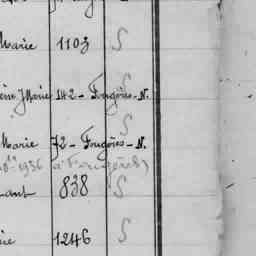 Marie 1103 S
S
Marie 142 - Fougères - N.
S
Marie 72 - Fougères - N.
1936 à Fougères)
ant 838 S
ie 1246 S